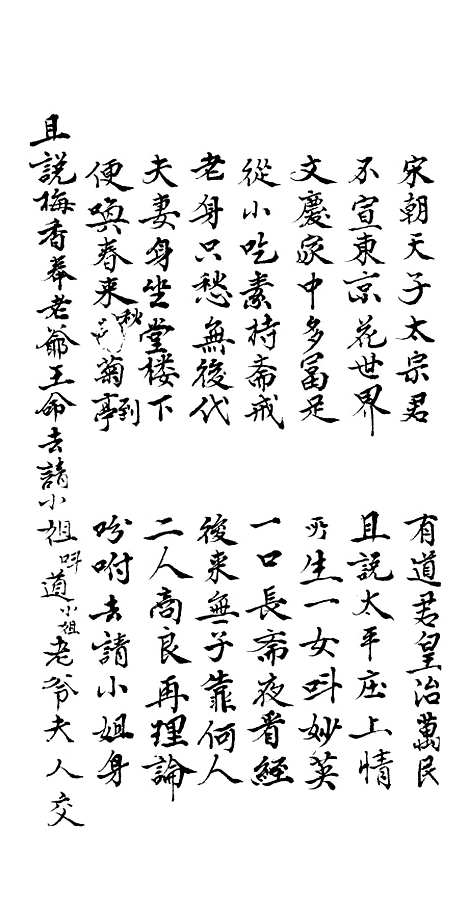 宋朝天子太宗君 有道君皇治萬民
不宣東京花世界 且説太平庄上情
文慶家中多冨足 所生一女呌妙英
從小吃素持斋戒 一口長斋夜看經
老身只愁無後代 後来無子靠何人
夫妻身坐堂楼下 二人商良再理論
便喚春来秋菊到亭 吩咐去請小姐身
且説梅香奉老爺王命去請小祖呌道小姐老爷夫人交